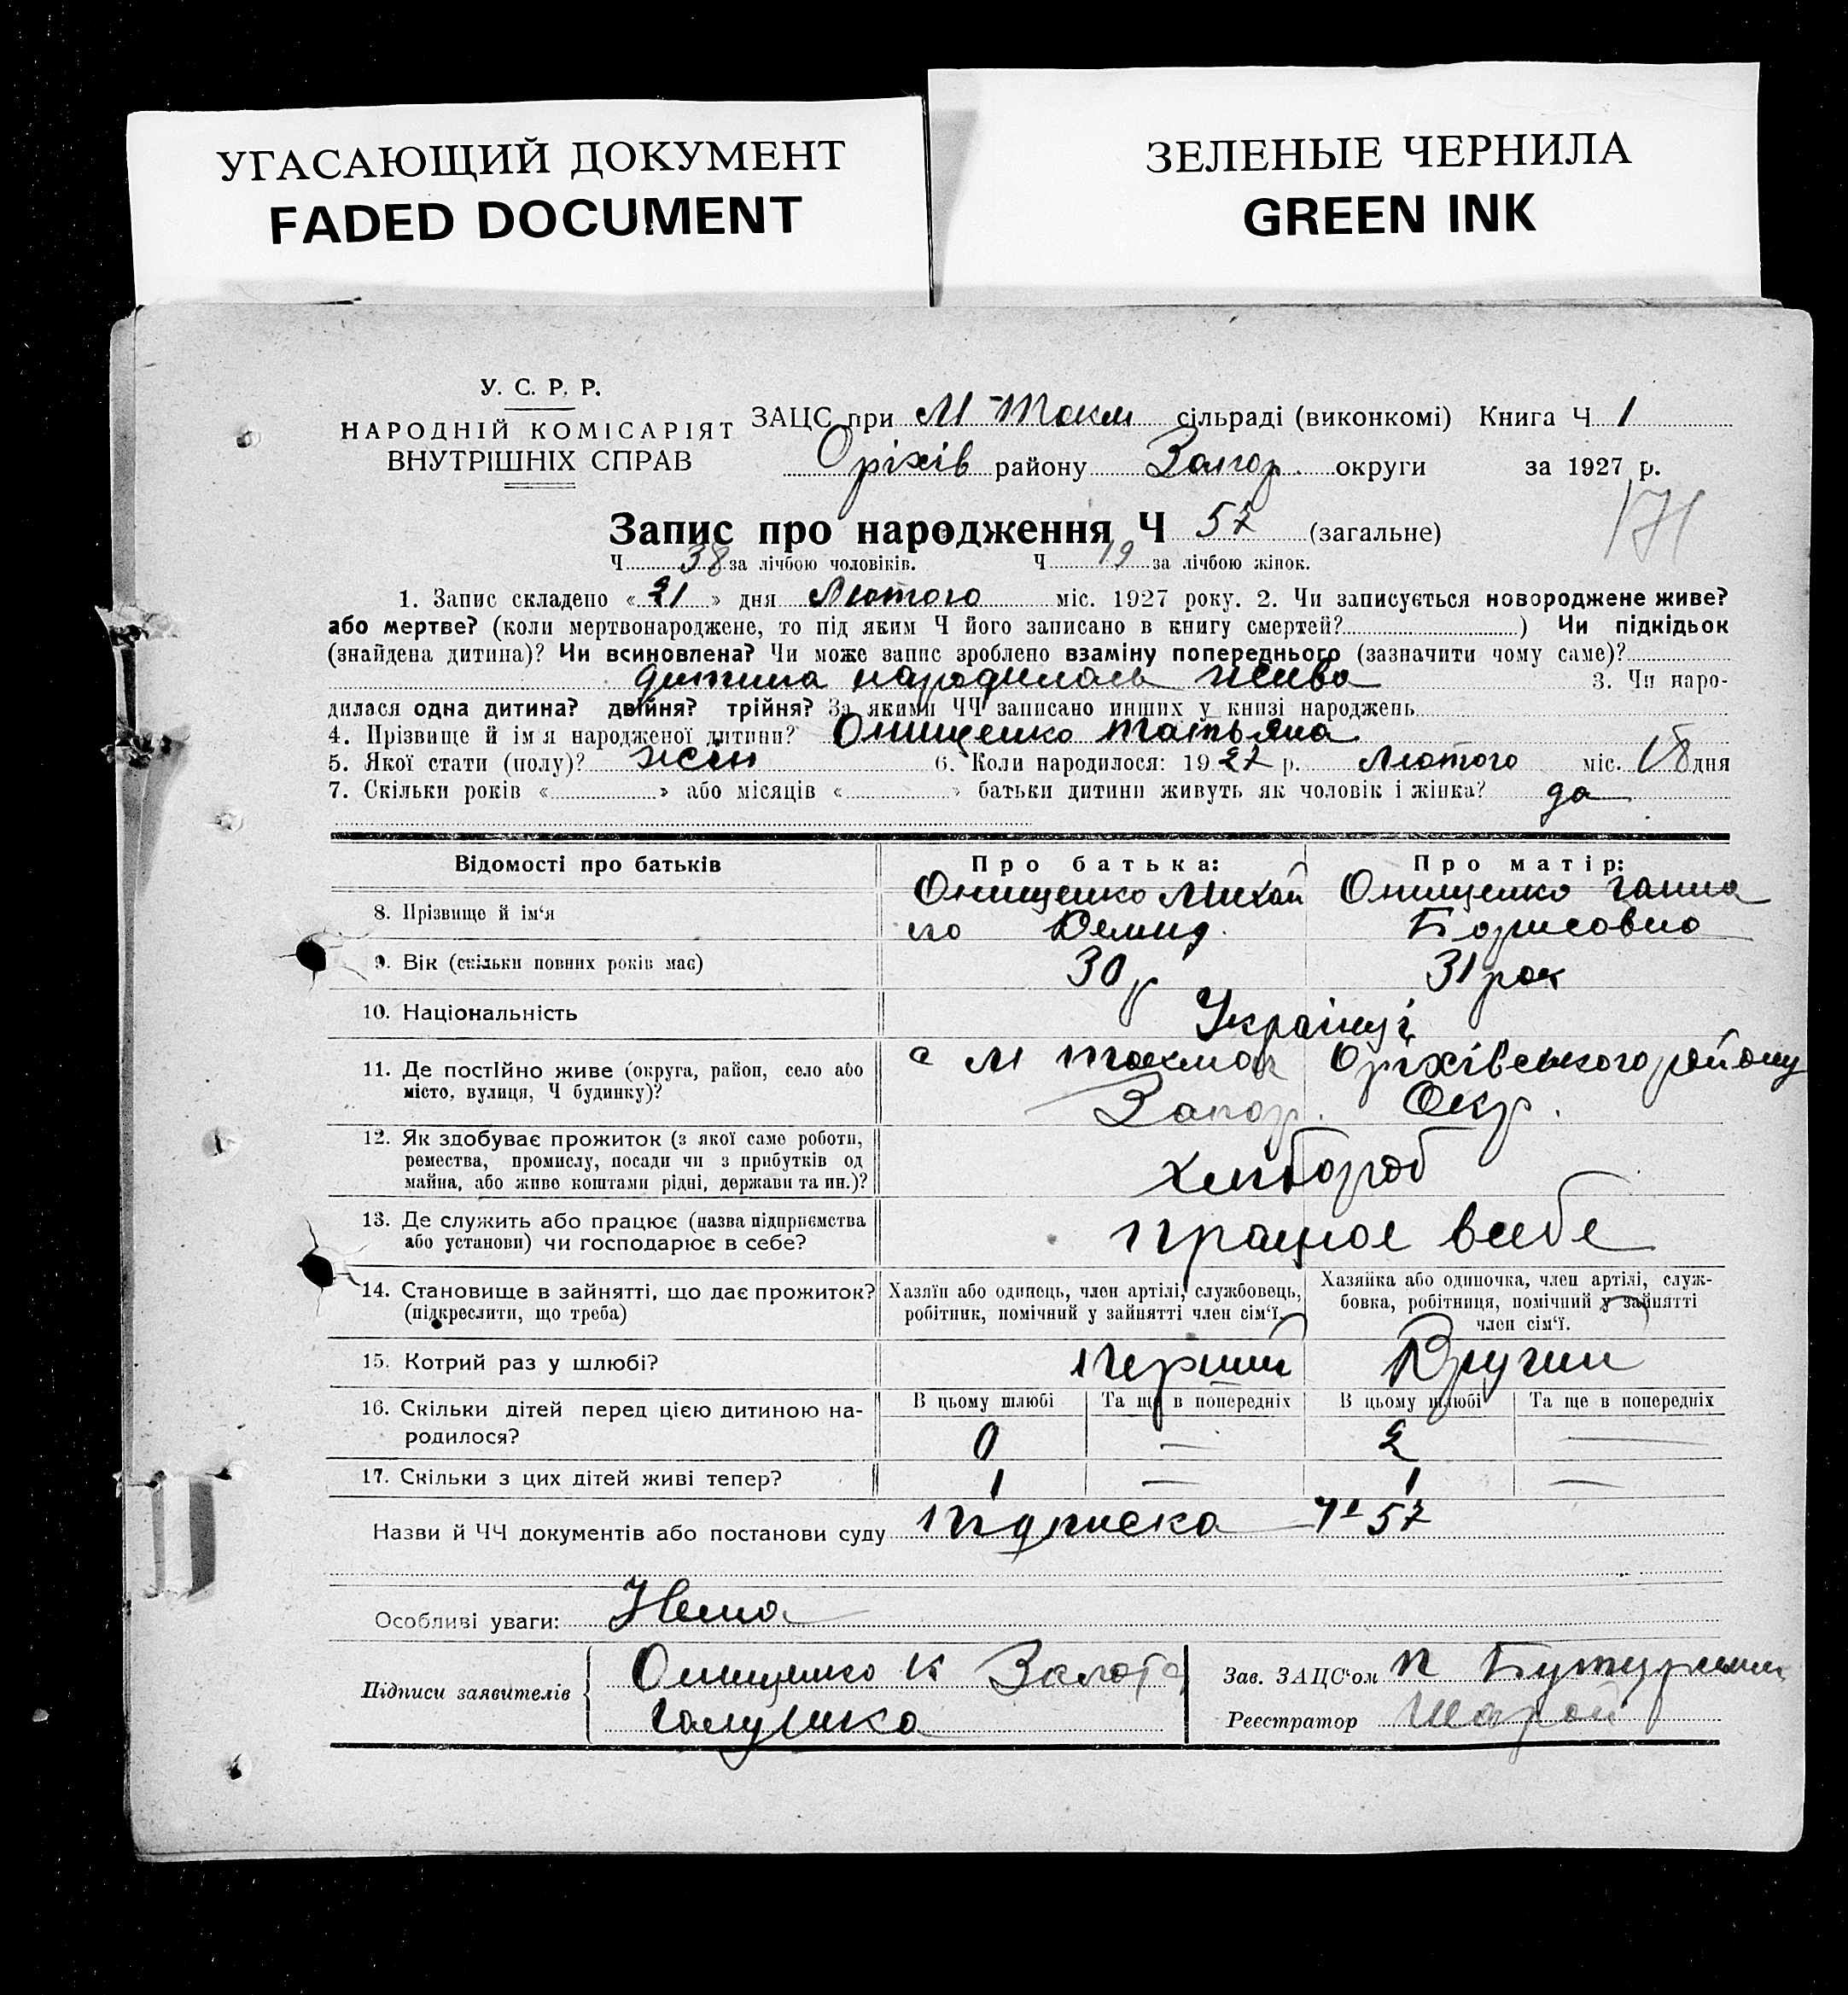 УГАСАЮЩИЙ ДОКУМЕНТ
FADED DOCUMENT
ЗЕЛЕНЫЕ ЧЕРНИЛА
GREEN INK
У. С. Р. Р.
НАРОДНІЙ КОМІСАРІЯТ
ВНУТРІШНІХ СПРАВ
ЗАЦС при М-Токм сільраді (виконкомі) Книга Ч 1
Оріхів району Запор. округи за 1927 р.
171
Запис про народження Ч 57 (загальне)
Ч 38 за лічбою чоловіків. Ч 19 за лічбою жінок.
1. Запис складено «21» дня Лютого міс. 1927 року. 2. Чи записується новороджене живе?
або мертве? (коли мертвонароджене, то під яким Ч його записано в книгу смертей?) Чи підкідьок
(знайдена дитина)? Чи всиновлена? Чи може запис зроблено взаміну попереднього (зазначити чому саме)?
дитина народилась жива 3. Чи наро-
дилася одна дитина? двійня? трійня? За якими ЧЧ записано инших у книзі народжень
4. Прізвище й ім я народженої дитини? Онищенко Татьяна
5. Якої стати (полу)? жін 6. Коли народилося: 1927 р. Лютого міс. 18 дня
7. Скільки років « » або місяців « » батьки дитини живуть як чоловік і жінка? да
Відомості про батьків Про батька: Про матір:
8. Прізвище й ім‘я Онищенко Михай Онищенко Ганна
Демид. Борисовно
9. Вік (скільки повних років має) 30 р 31 рок
10. Національність Українці
11. Де постійно живе (округа, район, село або
місто, вулиця, Ч будинку)? с М Токмак Оріхівського району
Запор. Окр.
12. Як здобуває прожиток (з якої саме роботи,
ремества, промислу, посади чи з прибутків од
майна, або живе коштами рідні, держави та ин.)? хлібороб
13. Де служить або працює (назва підприємства
або установи) чи господарює в себе? працює всебе
14. Становище в зайнятті, що дає прожиток?
(підкреслити, що треба)
Хазяїн або одинець, член артілі, службовець,
робітник, помічний у зайнятті член сім‘ї.
Хазяйка або одиночка, член артілі, служ-
бовка, робітниця, помічний у зайнятті
член сім‘ї.
15. Котрий раз у шлюбі? Перший Другий
16. Скільки дітей перед цією дитиною на-
родилося?
В цьому шлюбі Та ще в попередніх В цьому шлюбі Та ще в попередніх
0 — 2 —
17. Скільки з цих дітей живі тепер? 1 — 1 —
Назви й ЧЧ документів або постанови суду Підписка Ч 57
Особливі уваги: Нема
Підписи заявителів Онищенко К Золота
Галушка
Зав. ЗАЦС‘ом
Реєстратор Шарой